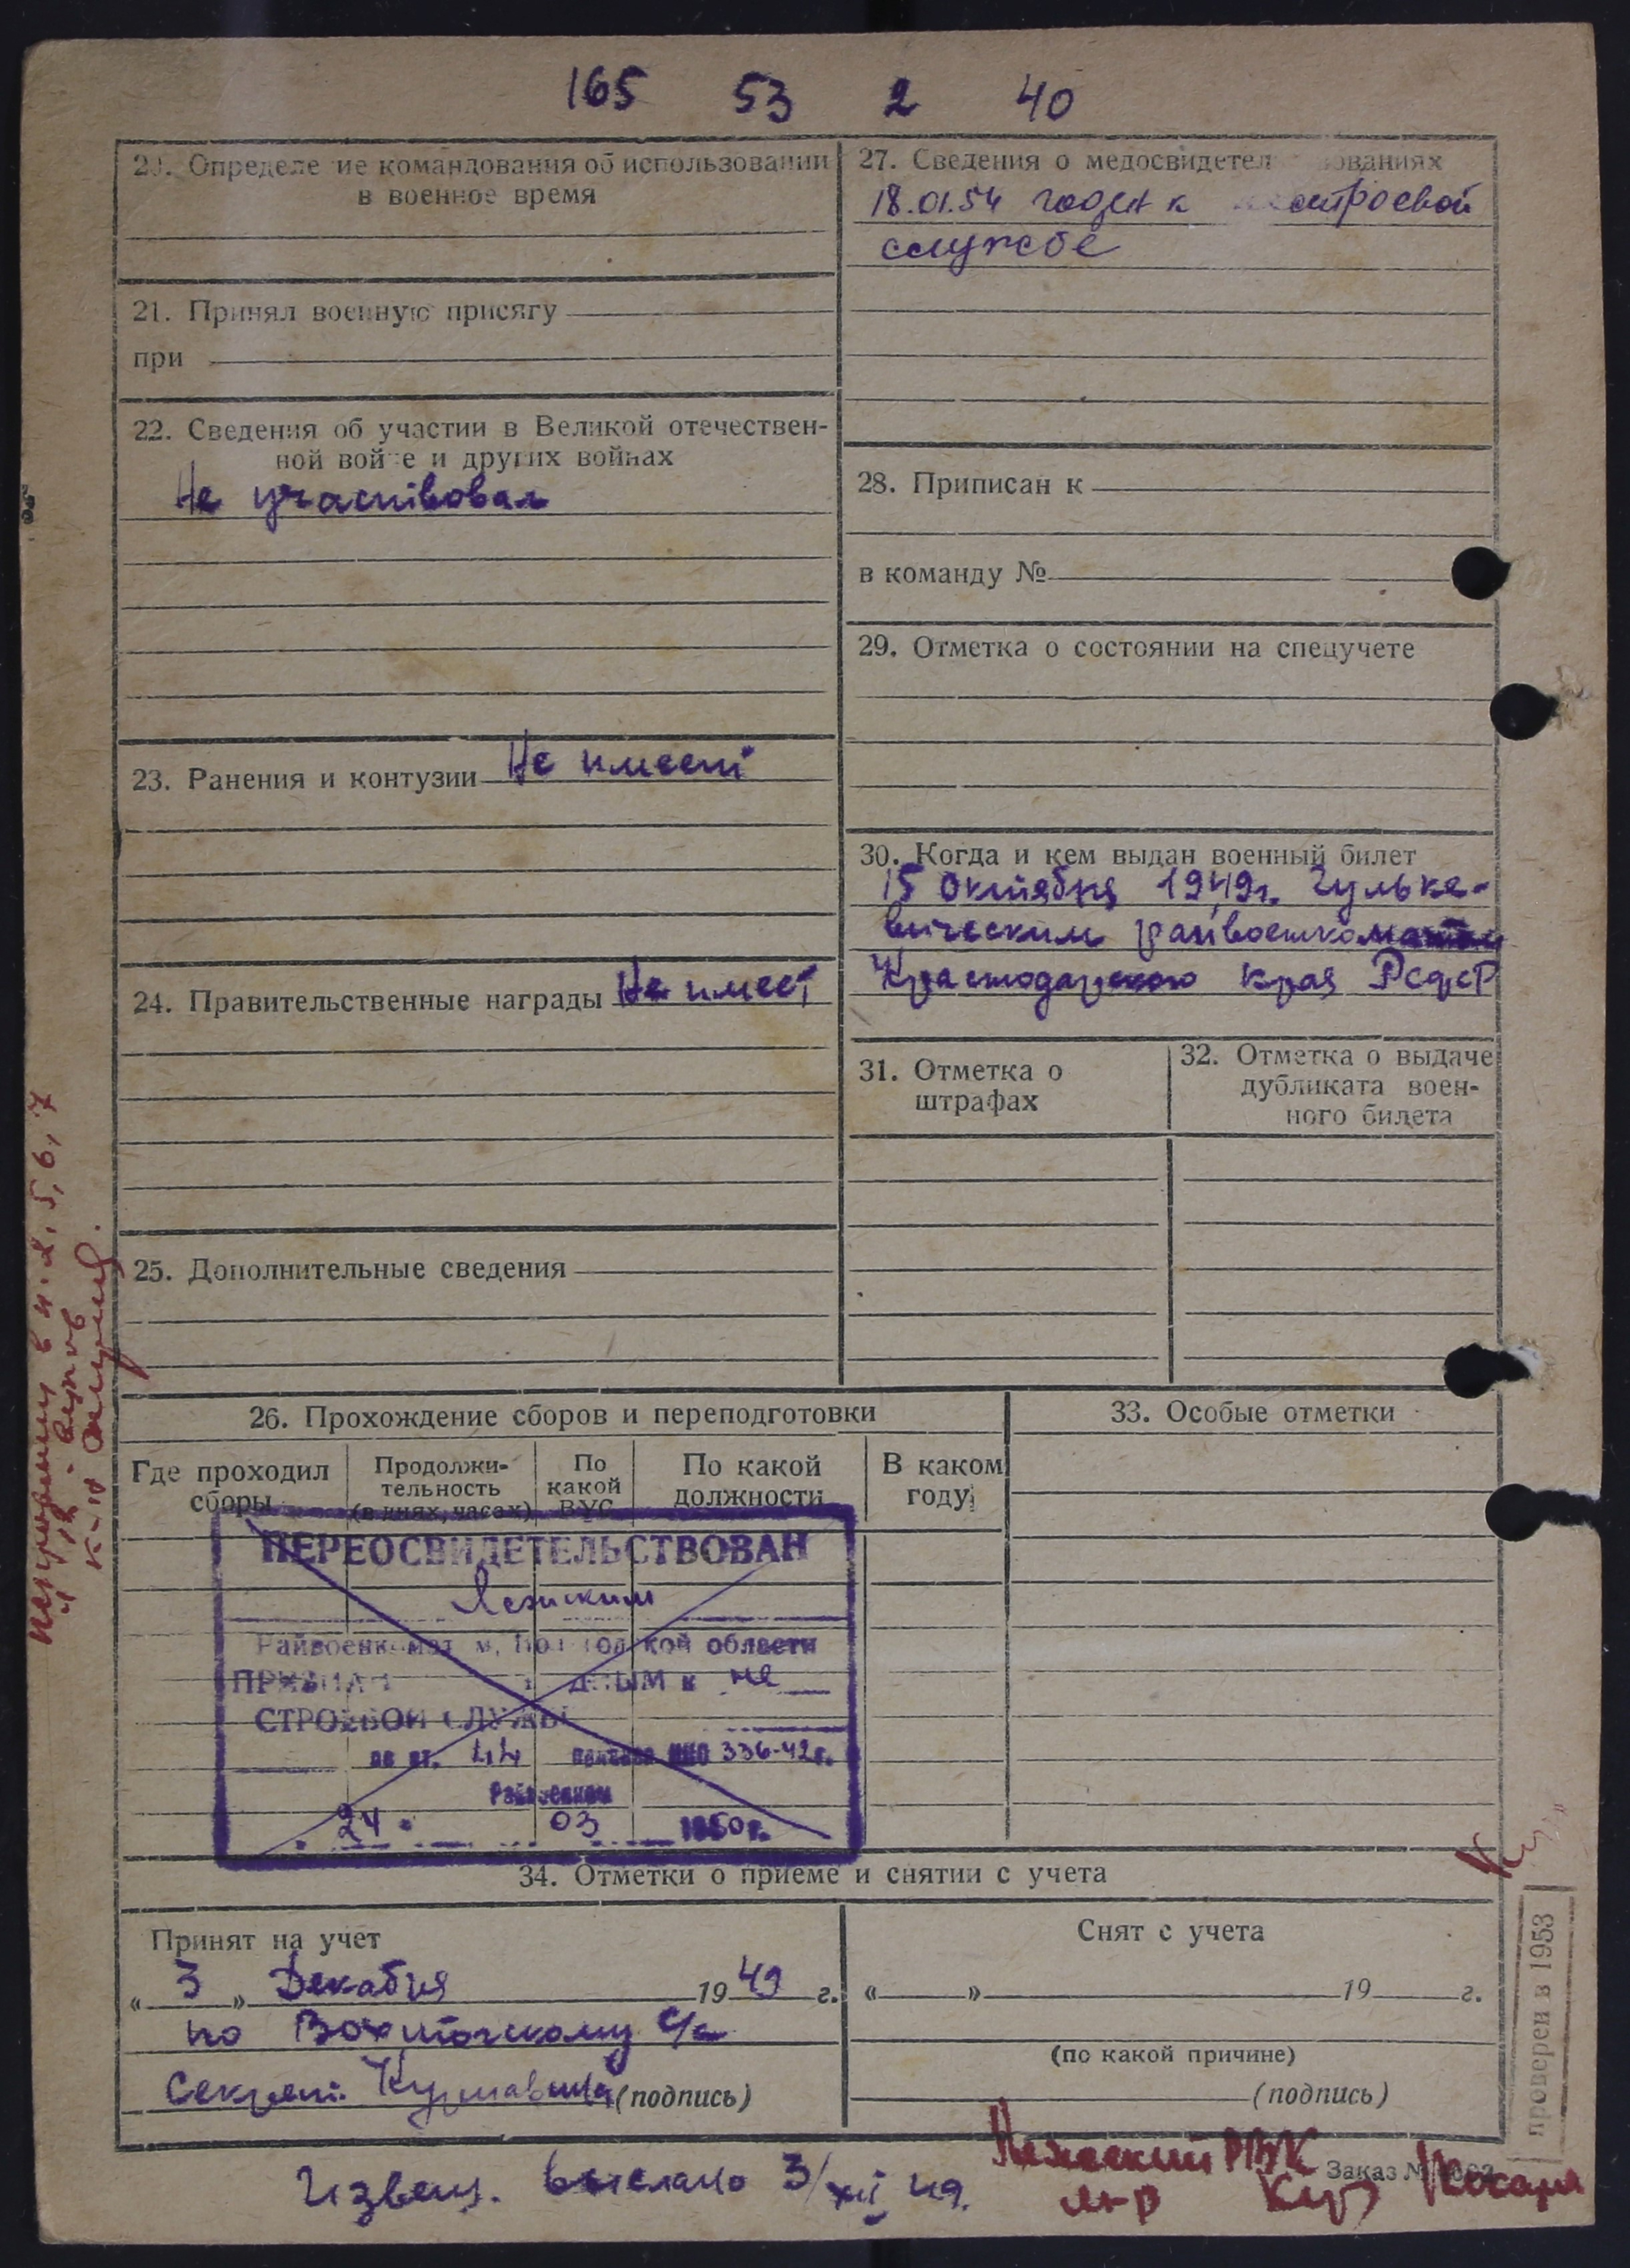 165 53 2 40
20. Определение командования об использовании
в военное время
21. Принял военную присягу
при
22. Сведения об участии в Великой отечествен-
ной войне и других войнах
Не участвовал
23. Ранения и контузии Не имеет
24. Правительственные награды Не имеет
25. Дополнительные сведения
27. Сведения о медосвидетельствованиях
18.01.54 годен к нестроевой
службе
28. Приписан к
в команду №
29. Отметка о состоянии на спецучете
30. Когда и кем выдан военный билет
15 Октября 1949г. Гульке-
вическим райвоенкоматом
Краснодарского края РСФСР
31. Отметка о
штрафах
32. Отметка о выдаче
дубликата воен-
ного билета
26. Прохождение сборов и переподготовки
Где проходил
сборы
Продолжи-
тельность
(в днях, часах)
По
какой
ВУС
По какой
должности
В каком
году
33. Особые отметки
ПЕРЕОСВИДЕТЕЛЬСТВОВАН
Лежским
Райвоенкоматом, Вологодской области
ПРИЗНАН ГОДНЫМ к не
СТРОЕВОЙ СЛУЖБЕ
по ст. приказа НКО 336-42г.
Райвоенком
24 03 1950г.
34. Отметки о приеме и снятии с учета
Принят на учет
« 3 » Декабря 1949 г.
по Вохтожскому с/с
Секрет. (подпись)
Снят с учета
« » 19 г.
(по какой причине)
(подпись)
Извещ. выслано 3/XII 49.
Лежский РВК
м-р
Заказ №
проверен в 1953
4, 5, 6, 7